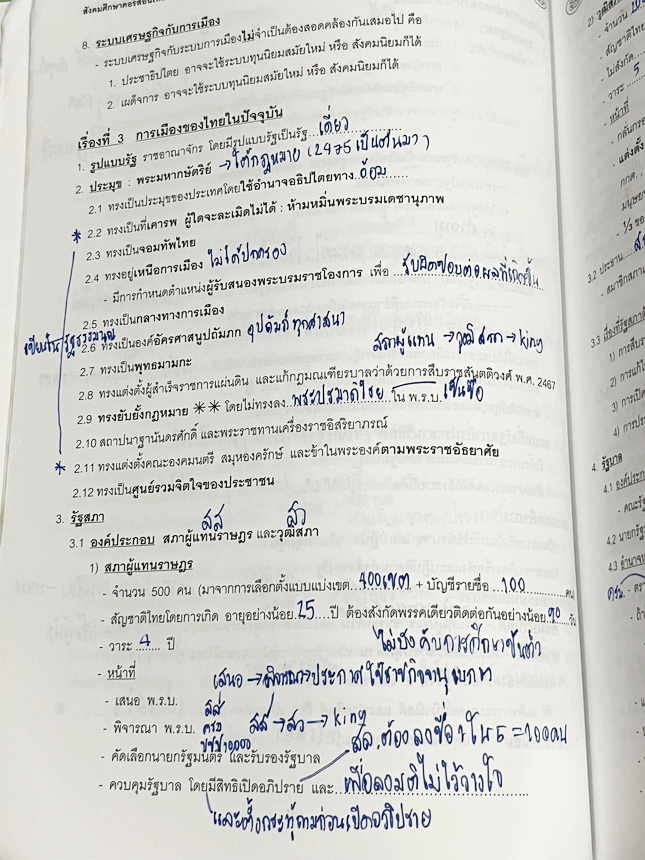 สังคมศึกษาคอร์สอน
8. ระบบเศรษฐกิจกับการเมือง
- ระบบเศรษฐกิจกับระบบการเมืองไม่จำเป็นต้องสอดคล้องกันเสมอไป คือ
1. ประชาธิปไตย อาจจะใช้ระบบทุนนิยมสมัยใหม่ หรือ สังคมนิยมก็ได้
2. เผด็จการ อาจจะใช้ระบบทุนนิยมสมัยใหม่ หรือ สังคมนิยมก็ได้
เรื่องที่ 3 การเมืองของไทยในปัจจุบัน
1. รูปแบบรัฐ ราชอาณาจักร โดยมีรูปแบบรัฐเป็นรัฐ เดี่ยว
2. ประมุข : พระมหากษัตริย์ → ใต้กฎหมาย (2475 เป็นต้นมา)
2.1 ทรงเป็นประมุขของประเทศโดยใช้อำนาจอธิปไตยทาง อ้อม
* 2.2 ทรงเป็นที่เคารพ ผู้ใดจะละเมิดไม่ได้ : ห้ามหมิ่นพระบรมเดชานุภาพ
2.3 ทรงเป็นจอมทัพไทย
2.4 ทรงอยู่เหนือการเมือง ไม่ได้ปกครอง
- มีการกำหนดตำแหน่งผู้รับสนองพระบรมราชโองการ เพื่อ รับผิดชอบต่อผลที่เกิดขึ้น
2.5 ทรงเป็นกลางทางการเมือง
เขียนในรัฐธรรมนูญ
2.6 ทรงเป็นองค์อัครศาสนูปถัมภก อุปถัมภ์ทุกศาสนา
สภาผู้แทน → วุฒิสภา → king
2.7 ทรงเป็นพุทธมามกะ
2.8 ทรงแต่งตั้งผู้สำเร็จราชการแผ่นดิน และแก้กฎมณเฑียรบาลว่าด้วยการสืบราชสันตติวงศ์ พ.ศ. 2467
2.9 ทรงยับยั้งกฎหมาย ** โดยไม่ทรงลง พระปรมาภิไธย ใน พ.ร.บ. เซ็นชื่อ
2.10 สถาปนาฐานันดรศักดิ์ และพระราชทานเครื่องราชอิสริยาภรณ์
* 2.11 ทรงแต่งตั้งคณะองคมนตรี สมุหองครักษ์ และข้าในพระองค์ตามพระราชอัธยาศัย
2.12 ทรงเป็นศูนย์รวมจิตใจของประชาชน
3. รัฐสภา
สส สว
3.1 องค์ประกอบ สภาผู้แทนราษฎร และวุฒิสภา
1) สภาผู้แทนราษฎร
- จำนวน 500 คน (มาจากการเลือกตั้งแบบแบ่งเขต 400 เขต + บัญชีรายชื่อ 100 คน
- สัญชาติไทยโดยการเกิด อายุอย่างน้อย 25 ปี ต้องสังกัดพรรคเดียวติดต่อกันอย่างน้อย 90 วัน
- วาระ 4 ปี
ไม่บังคับการศึกษาขั้นต่ำ
- หน้าที่
เสนอ → พิจารณา → ประกาศใช้ราชกิจจานุเบกษา
- เสนอ พ.ร.บ.
- พิจารณา พ.ร.บ. สส → สว → king
- คัดเลือกนายกรัฐมนตรี และรับรองรัฐบาล
สส. ต้องลงชื่อ 1 ใน 5 = 100 คน
- ควบคุมรัฐบาล โดยมีสิทธิเปิดอภิปราย และ เพื่อลงมติไม่ไว้วางใจ
และตั้งกระทู้ถามก่อนเปิดอภิปราย
3.2 ประธาน
4. รัฐบาล